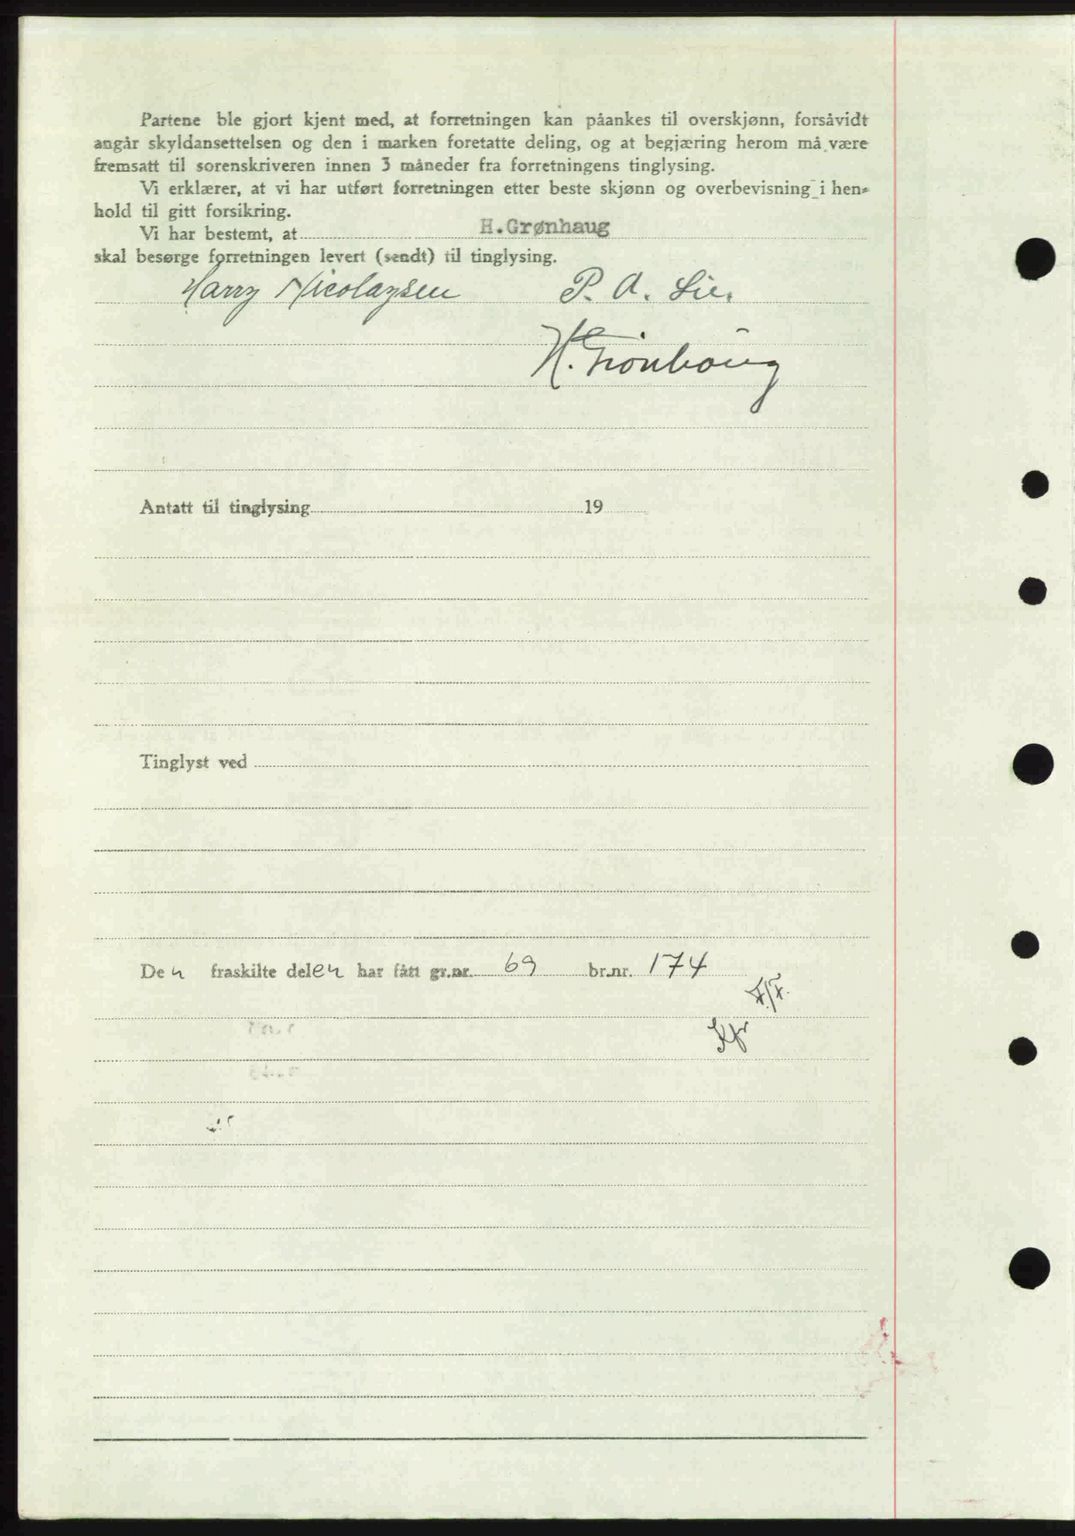 Partene ble gjort kjent med, at forretningen kan påankes til overskjønn, forsåvidt
angår skyldansettelsen og den i marken foretatte deling, og at begjæring herom må være
fremsatt til sorenskriveren innen 3 måneder fra forretningens tinglysing.
Vi erklærer, at vi har utført forretningen etter beste skjønn og overbevisning i hen-
hold til gitt forsikring.
Vi har bestemt, at H.Grønhaug
skal besørge forretningen levert (sendt) til tinglysing.
Harry Nicolaysen P. A. Lie.
H. Grönhaug
Antatt til tinglysing 19
Tinglyst ved
Den fraskilte delen har fått gr.nr. 69 br.nr. 174